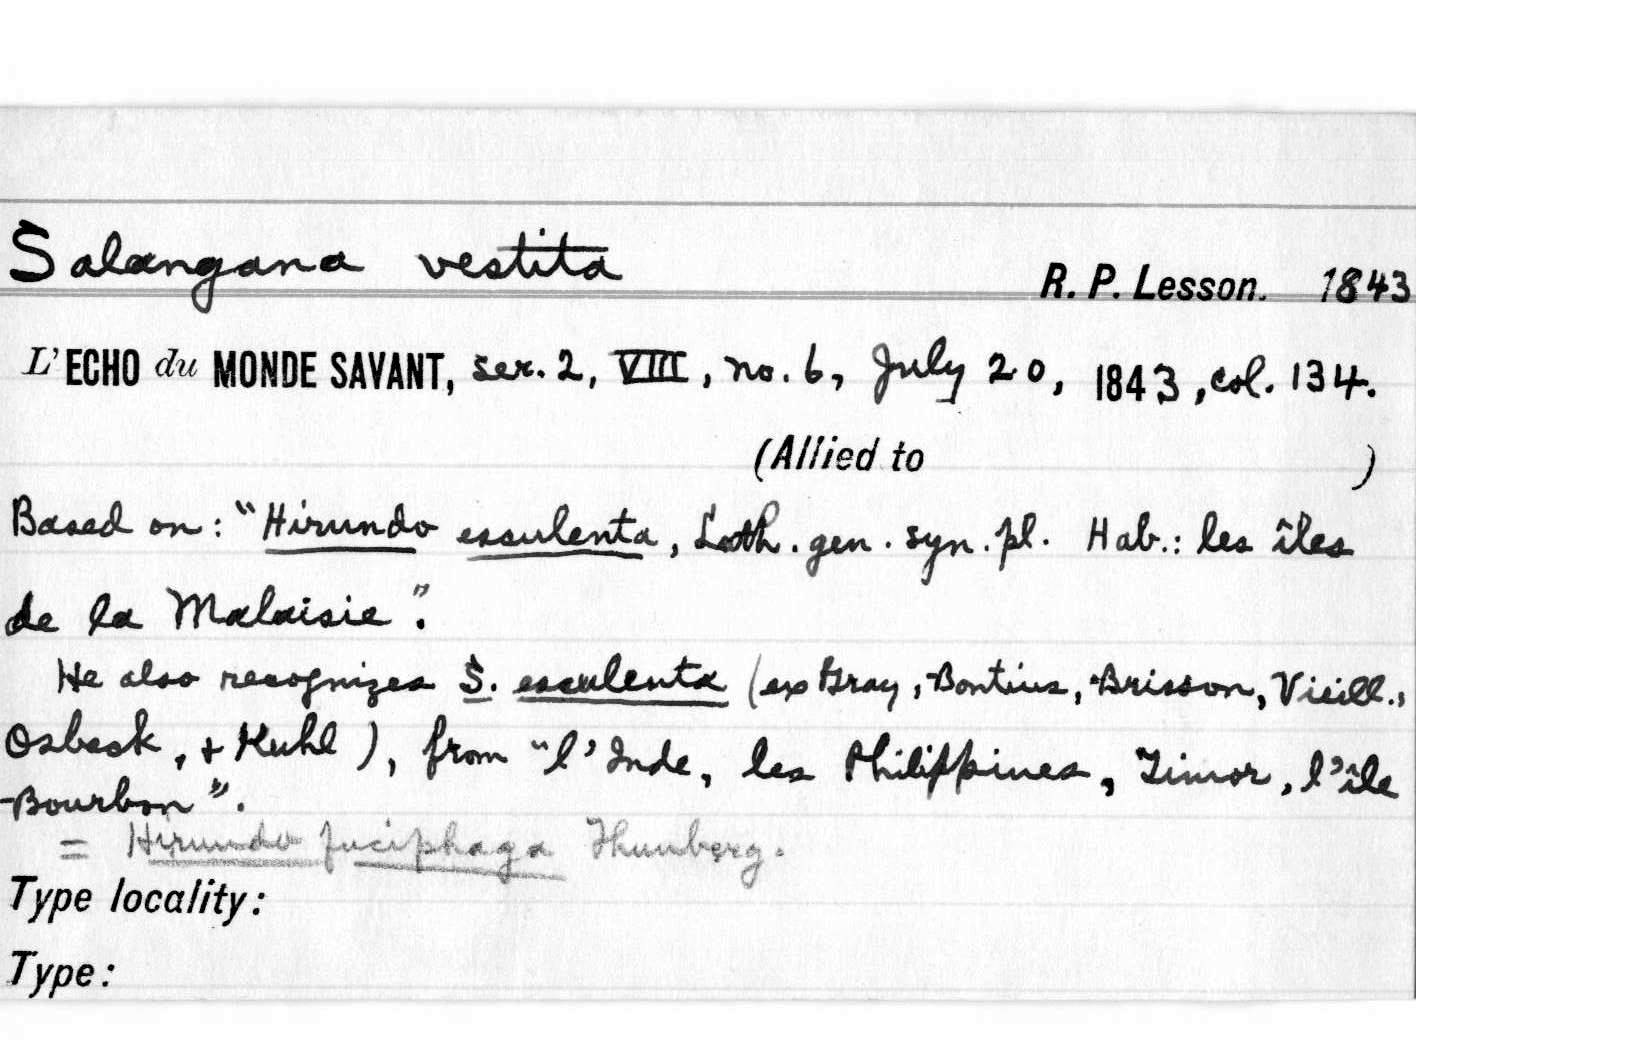 Salangana vestita
R. P. Lesson. 1843
L' ECHO du MONDE SAVANT, ser. 2, VIII, no. 6, July 20, 1843, col. 134.
(Allied to )
Based on: "Hirundo esculenta, Lath. gen. syn. pl. Hab.: les îles
de la Malaisie".
He also recognizes S. esculenta (ex Gray, Bontius, Brisson, Vieill.,
Osbeck, + Kuhl), from "l'Inde, les Philippines, Timor, l'île
Bourbon".
= Hirundo fuciphaga Thunberg.
Type locality:
Type: